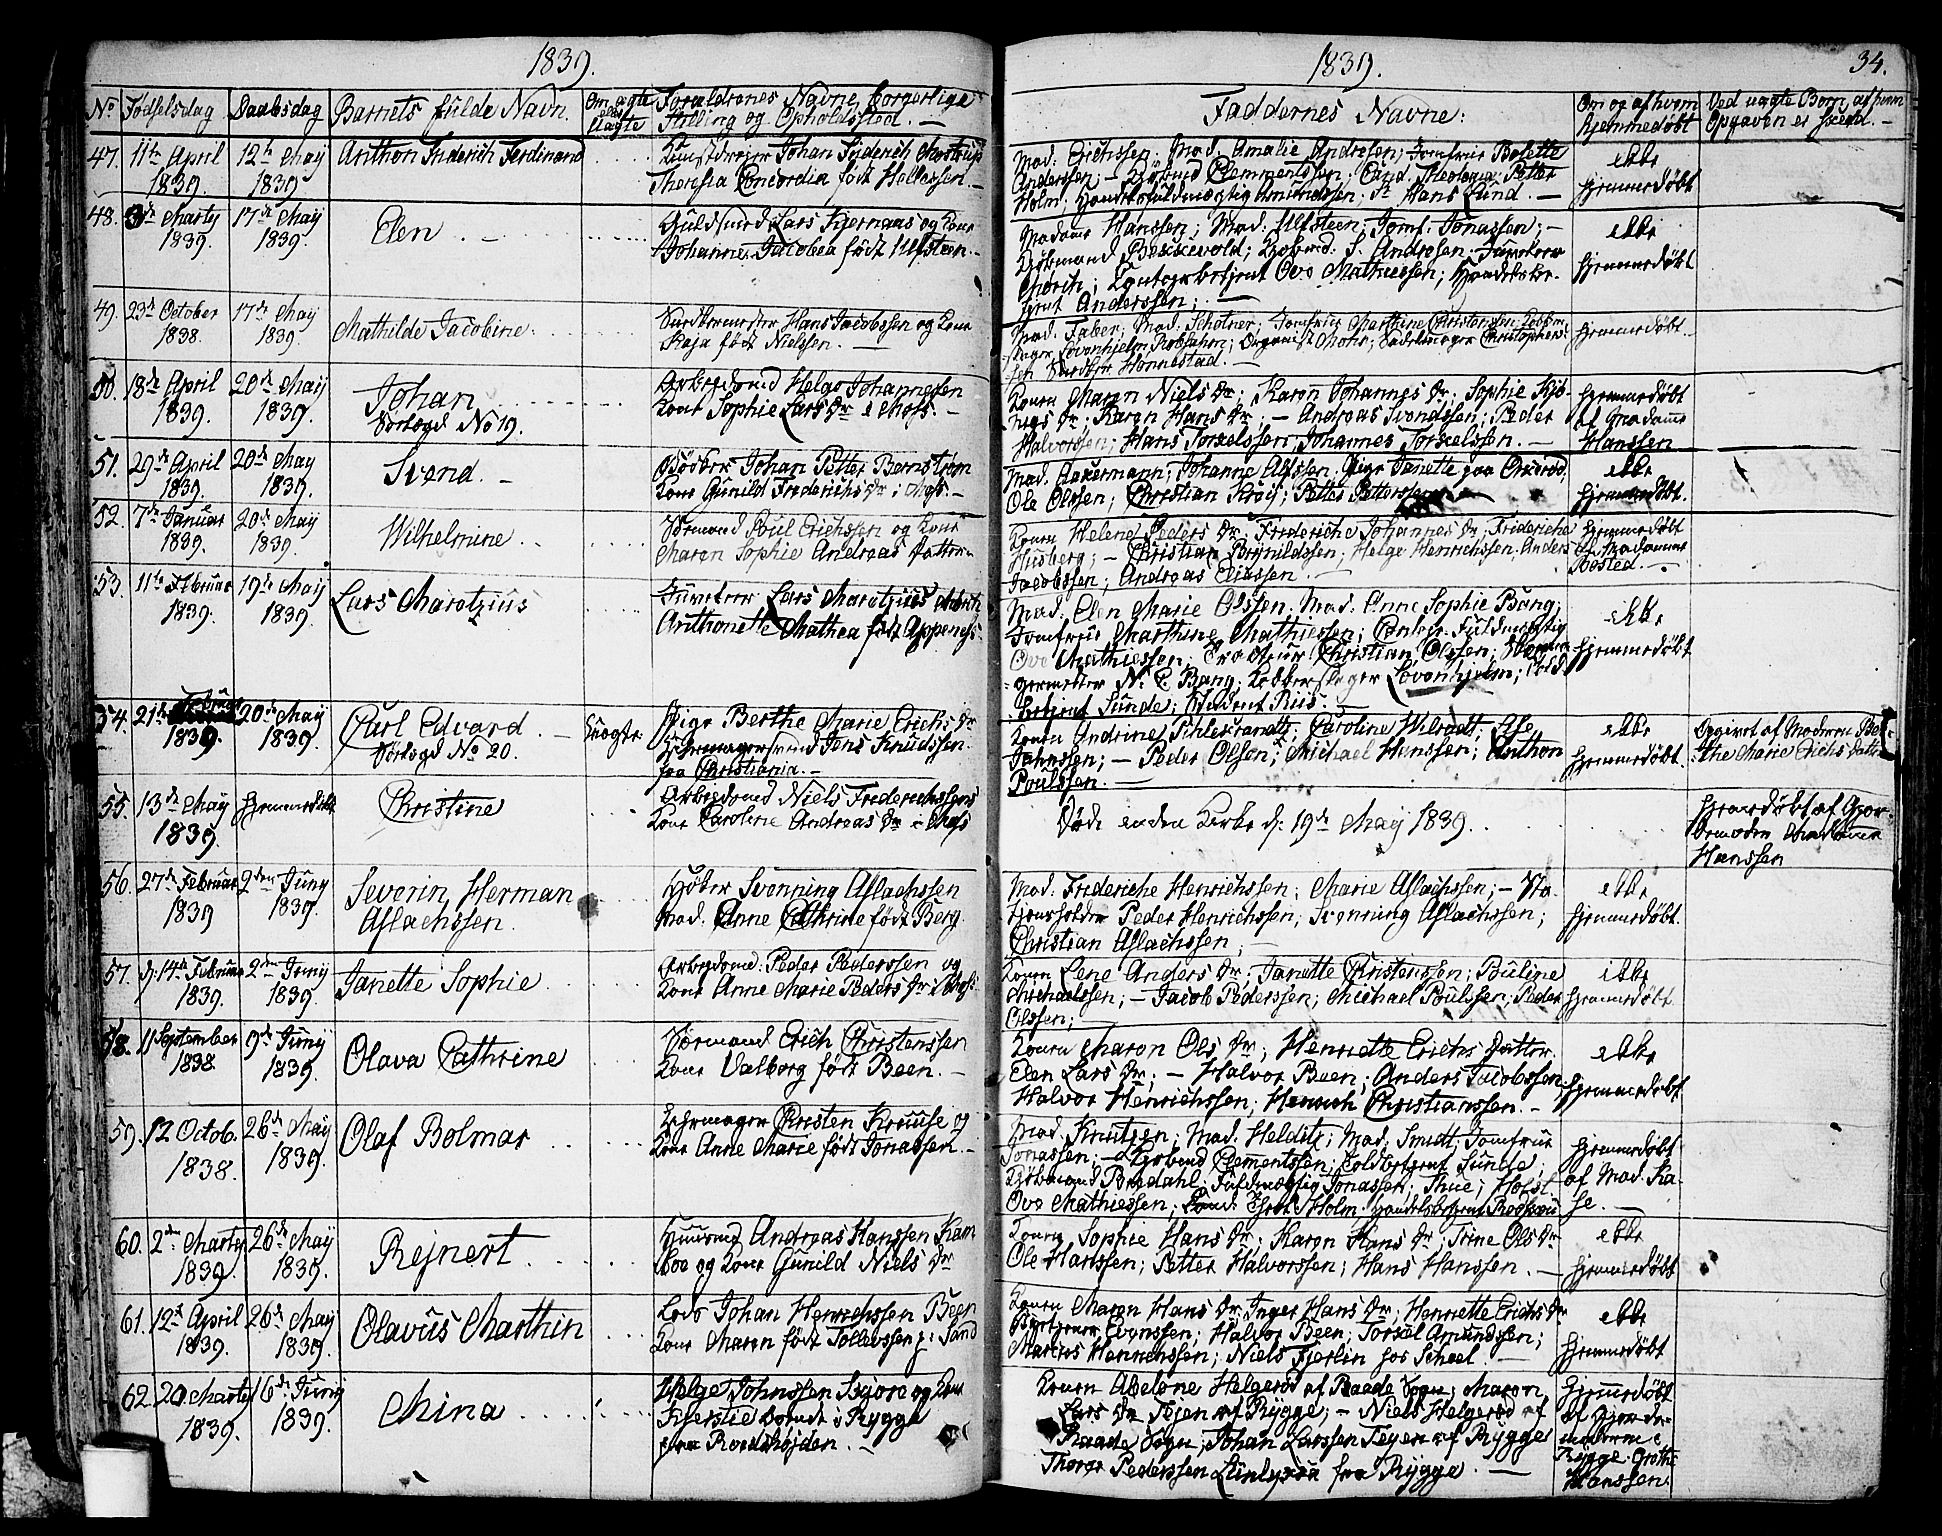 1839.
No Fødselsdag Daabsdag Barnets fulde Navn. Om ægte eller uægte Forældrenes Navne borgerlige Stilling og Opholdssted. —
47. 11te April 1839. 12te May 1839. Anthon Friderich Ferdinand
Johan Friderich
Theresia Concordia født Hellessen. —
48. 3de Marty 1839. 17de May 1839. Elen
Guldsmed Lars Kjernaas og Kone
Johanne Jacobea født Ulfsteen. —
49. 23de October 1838. 17de May 1839. Mathilde Jacobine.
Hans Jacobssen og Kone
Kaja født Nielssen. —
50. 18de April 1839. 20de May 1839. Johan
Dødsøgd No 19.
Arbejdsmd Helge Johannessen
Kone Sophie Lars Dr i Moss. —
51. 29de April 1839. 20de May 1839. Svend. —
Bødker Johan Petter Bernstrøm
Kone Gunild Friderichs Dr i Moss. —
52. 7de Januar 1839. 20de May 1839. Wilhelmine
Poul Erichssen og Kone
Maren Sophie Andreas Datter
53. 11te Februar 1839. 19de May 1839. Lars Marotzius
Lars Marotzius Mørch
Anthonette Mathea født Appenæs.
54. 21de 1839. 20de May 1839. Carl Edvard. — Uægte
No 20.
Pige Berthe Marie Erichs Dr
Jens Knudssen.
fra Christiania. —
55. 13de May 1839. hjemmedøbt Christine
Arbejdsmd Niels Friderichssens
Kone Caroline Andreas Dr i Moss
56. 27de Februar 1839 2den Juny 1839. Severin Herman
Aslachssen.
Svenning Aslachssen
Mad. Anne Cathrine født Berg
57. d: 14de Februar 1839. 2den Juny 1839. Janette Sophie
Arbejdsmd: Peder Pederssen og
Kone Anne Marie Peders Dr i Moss
58. 11 September 1838. 9de Juny 1839. Olava Cathrine
Erich Christenssen
Kone Valborg født Been. —
59. 12 Octob. 1838. 26de May 1839. Olaf Bolmar
Christen Kruuse og
Kone Anne Marie født Jonassen. —
60. 2den Marty 1839. 26de May 1839. Rejnert
Huusmd Andreas Hanssen Kam
boe og Kone Gunild Niels Dr
61. 12te April 1839. 26de May 1839. Olavus Marthin
Lods Johan Henrichssen Been
Kone Maren født Tollevssen
62. 20 Marty 1839. 16de Juny 1839. Mina
Helge Johnssen og Kone
Kjerstie boende i Rygge

1839. 34.
Faddernes Navne: Om og af hvem hjemmedøbt Ved uægte Børn af hvem Opgaven er skeed. —
Mad. Erichssen; Mad. Amalie Andresen; Jomfrue Bolette
Anderssen; — Kjøbmd Clemmentssen; Cand. Theologia Petter
Holm; Handelsfuldmægtig Amundssen; Sr Hans Lund. —
ikke hjemmedøbt
Madame Hanssen; Mad. Ulfsteen; Jomf. Jonassen; —
Kjøbmand; Kjøbmd. S. Andresen
Mørch; Ove Mathiessen;
Anderssen; —
ikke hjemmedøbt
Mad. Faber; Mad. Schøtner; Jomfrue Marthine Christenssen
Løvenhjelm; Robsahm; Organist Mohr; Christophers
sen Hønnestad. —
hjemmedøbt.
Konen Maren Niels Dr; Karen Johannes Dr; Sophie
Dr; Karen Hans Dr; — Andreas Svendssen; Peder
Halvorssen; Hans Torkelssen; Johannes Torkelssen. —
hjemmedøbt af Madame Hanssen
Mad. Ackermann; Johanne Alfssen; Pige Janette paa
Ole Olssen; Christian; Petter Petterssen
ikke hjemmedøbt.
Konen Helene Peders Dr; Frideriche Johannes Dr; Frideriche
Husberg; — Christian Brynildssen; Helge Henrichssen; Anders
Jacobssen; Andreas Eliassen. —
hjemmedøbt af Madamme Bosted. —
Mad. Elen Marie Olssen; Mad. Anne Sophie Bang;
Jomfrue Marthine Mathiessen; Fuldmægtig
Ove Mathiessen; Christian Olssen;
N. C. Bang; Løvenhjelm;
Sunde; Student Riis. —
ikke hjemmedøbt
Konen Andrine; Caroline Wilradt; Else
Johnssen; — Peder Olsen; Michael Hanssen; Anthon
Poulssen. —
ikke hjemmedøbt.
Opgivet af Moderen Ber-
the Marie Erichs Datter
Døde uden Kirke d: 19de May 1839.
hjemmedøbt af Gjor-
demoder Madamme
Hanssen
Mad. Frideriche Henrichssen; Marie Aslachssen; —
Peder Henrichssen; Svenning Aslachssen;
Christian Aslachssen; —
ikke hjemmedøbt.
Konen Lene Anders Dr; Janette Christenssen; Pouline
Michaelssen; — Jacob Pederssen; Michael Poulssen; Peder
Olssen;
ikke hjemmedøbt
Konen Maren Ols Dr; Henriette Erichs Datter.
Elen Lars Dr; — Halvor Been; Anders Jacobssen.
Halvor Henrichssen; Henrich Christianssen. —
ikke hjemmedøbt
Mad. Knutzen; Mad. Helditz; Mad. Smidt; Jomfrue
Jonassen; — Kjøbmd Clemmentssen; Toldbetjent Sunde;
Kjøbmand Bredahl; Fuldmægtig Jonassen; Thue; Hofst
Ove Mathiessen; Holm
hjemmedøbt af Mad. Ka-
se. —
Konen Sophie Hans Dr; Karen Hans Dr; Trine Ols Dr
Ole Hanssen; Petter Halvorssen; Hans Hanssen. —
ikke hjemmedøbt
Konen Maren Hans Dr; Inger Hans Dr; Henriette Erichs Dr
Halvor Been; Torsæl Amundssen;
Marius Henrichssen; Niels Fjerlin hos Scheel. —
ikke hjemmedøbt
Konen Abelone Helgerød af Raade Sogn; Maren
Lars Dr Tejen af Rygge; — Niels Helgerød af
Raade Sogn; Johan Larssen Tejen af Rygge
Thorer Pederssen fra Rygge. —
hjemmedøbt
af Gjorde-
moderne i
Rygge Grethe
Hanssen.